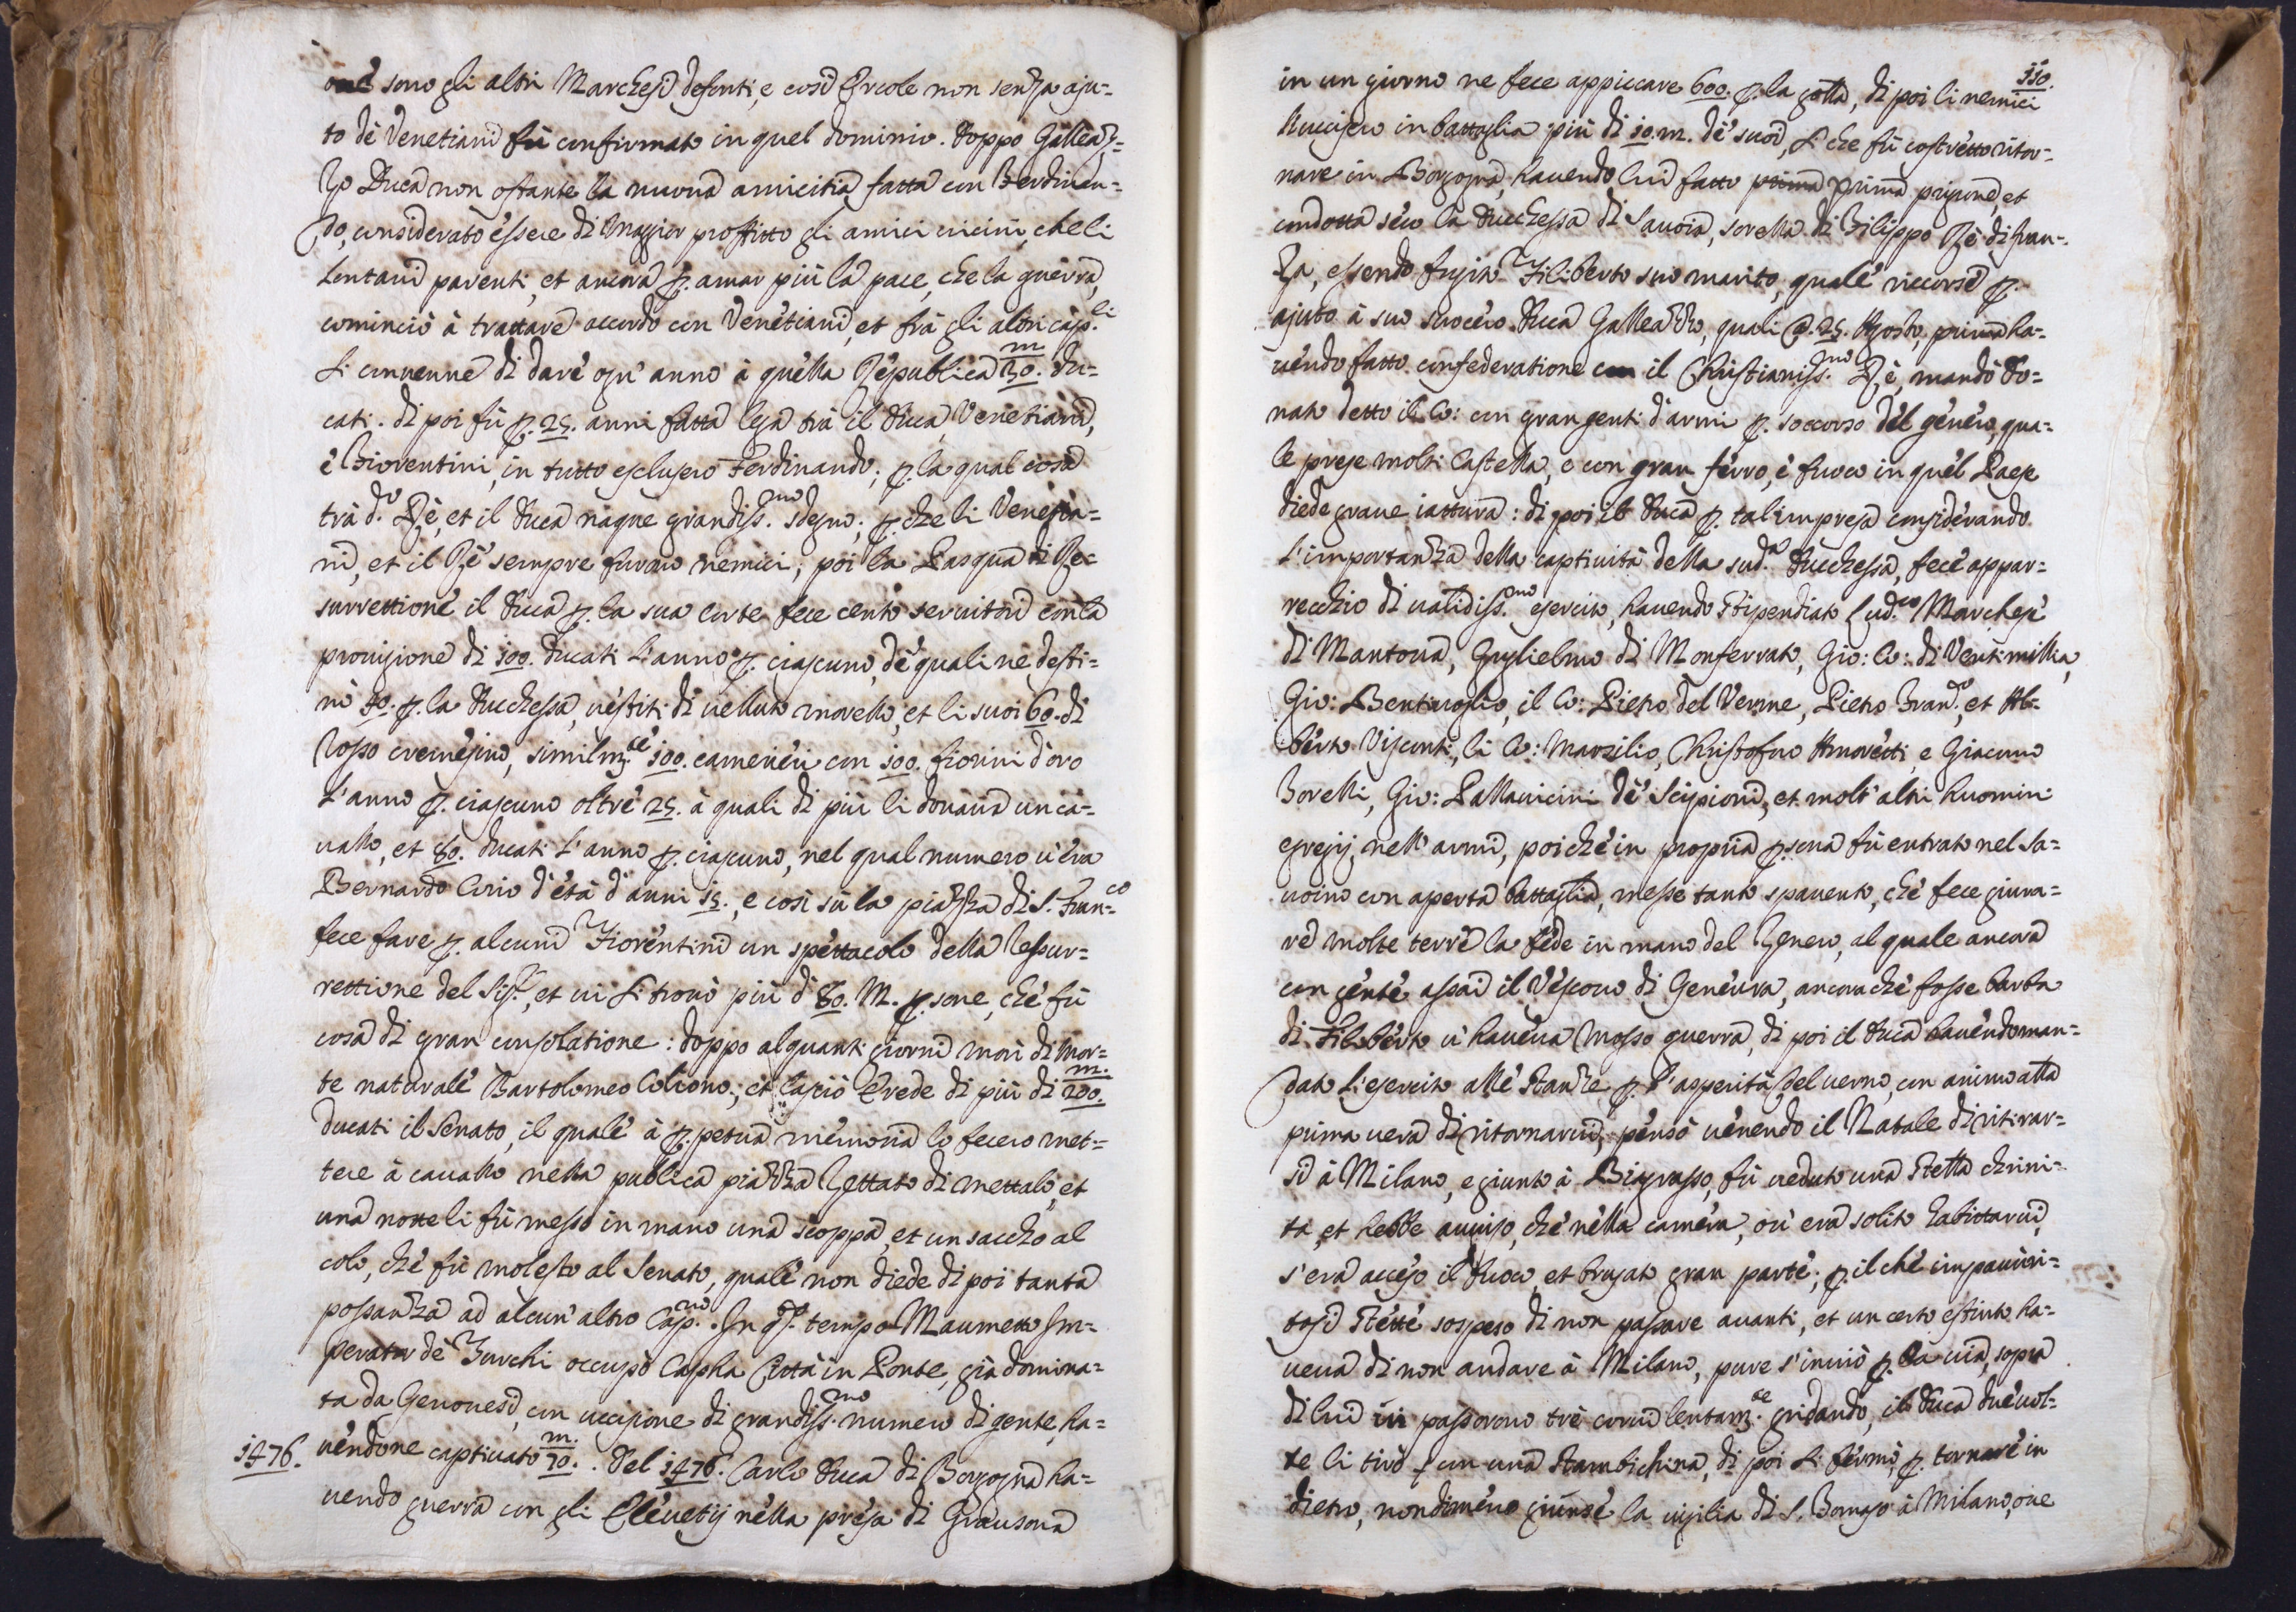 sono gli altri Marchesi defonti, e così Ercole non senza aju=
to dè Venetiani fù confirmato in quel dominio. Doppo Galleaz=
zo Duca non ostante la nuoua amicitia fatta con Ferdinan=
do, considerato essere di maggior proffitto gli amici uicini, che li
lontani parenti, et ancora p. amar più la pace, che la guerra,
cominciò à trattare accordo con Venetiani, et frà gli altri cap.li
si conuenne di dare ogn' anno à quella Republica m/30. du=
cati. di poi fù p. 25. anni fatta lega trà il Duca, Venetiani,
è Fiorentini, in tutto esclusero Ferdinando; p. la qual cosa
trà d.o Rè, et il Duca naque grandiss.mo sdegno; p. che li Venetia=
ni, et il Rè sempre furono nemici; poi la Pasqua di Re=
surrettione il Duca p. la sua corte fece cento seruitori con la
prouisione di 100. ducati l'anno p. ciascuno, dè quali ne desti=
nò 40. p. la Duchessa, uestiti di uelluto morello, et li suoi 60. di
rosso cremesino, similm.te 100. camerieri con 100. fiorini d'oro
l'anno p. ciascuno oltre 25. à quali di più li donaua un ca=
uallo, et 80. ducati l'anno p. ciascuno, nel qual numero u'era
Bernardo Corio d'età d'anni 15., e così sù la piazza di S. Fran.co
fece fare p. alcuni Fiorentini un spettacolo della resur=
rettione del Sig.r, et ui si trouò più d' 80. M. p.sone, che fù
cosa di gran consolatione: doppo alquanti giorni morì di mor=
te naturale Bartolomeo Coliono; et lasciò erede di più di m/200.
ducati il Senato, il quale à p.petua memoria lo fecero met=
tere à cauallo nella publica piazza gettato di mettalo, et
una notte li fù messo in mano una scoppa, et un saccho al
colo, che fù molesto al Senato, quale non diede di poi tanta
possanza ad alcun'altro Cap.no. In q.to tempo Maumetto Im=
perator dè Turchi occupò Capha Città in Ponte, già domina=
ta da Genouesi, con uccisione di grandiss.mo numero di gente, ha=
1476. uendone captiuato m/70. . Del 1476. Carlo Duca di Borgogna ha=
uendo guerra con gli Eluetij nella presa di Grausona
110.
in un giorno ne fece appiccare 600. p. la golla, di poi li nemici
uccisero in battaglia più di 10.m. dè suoi, si che fù costretto ritor=
nare in Borgogna, hauendo lui fatto prima prima prigione, et
condotta seco la Duchessa di Sauoia, sorella di Filippo Rè di fran=
za, essendo fugito Filiberto suo marito, quale riccorse p.
ajuto à suo suocero Duca Galleazzo, quali @. 25. Agosto, prima ha=
uendo fatto confederatione con il Christianiss.mo Rè, mandò Do=
nato detto il Co: con gran genti d'armi p. soccorso del genero, qua=
le prese molti Castella, e con gran ferro, è fuoco in quel Paese
diede graue iattura: di poi il Duca p. tal impresa considerando
l'importanza della captiuità della sud.a Duchessa, fece appar=
recchio di ualidiss.mo esercito, hauendo stipendiato Lud.co Marchese
di Mantoua, Guglielmo di Monferrato, Gio: Co: di Ventimillia,
Gio: Bentiuoglio, il Co: Pietro del Verme, Pietro Fran.co, et Al=
berto Visconti, li Co: Marsilio, Christoforo Amoretti, e Giacomo
Borelli, Gio: Pallauicini dè Scipioni, et molt' altri huomini
egregij nell' armi, poi che in propria p.sona fù entrato nel Sa=
uoino con aperta battaglia, messe tanto spauento, che fece giura=
re molte terre la fede in mano del genero, al quale ancora
con gente assai il Vescouo di Geneura, ancora che fosse barba
di Filiberto u' haueua mosso guerra, di poi il Duca hauendo man=
dato l'esercito alle stanze p. l'asperità del uerno, con animo alla
prima uera di ritornarui, pensò uenendo il Natale di ritirar=
si à Milano, e giunto à Biagrasso, fù ueduto una stella chrini=
ta, et hebbe auuiso, che nella camera, ou' era solito habittarui,
s'era acceso il fuoco, et brusato gran parte; p. il che impauri=
tosi stette sospeso di non passare auanti, et un certo estinto ha=
ueua di non andare à Milano, pure s'inuiò p. la uia, sopra
di lui ui passorono trè corui lentam.te gridando, il Duca due uol=
te li tirò con una stambichina, di poi si fermò p. tornare in
dietro, nondimeno giunse la uigilia di S. Tomaso à Milano, oue